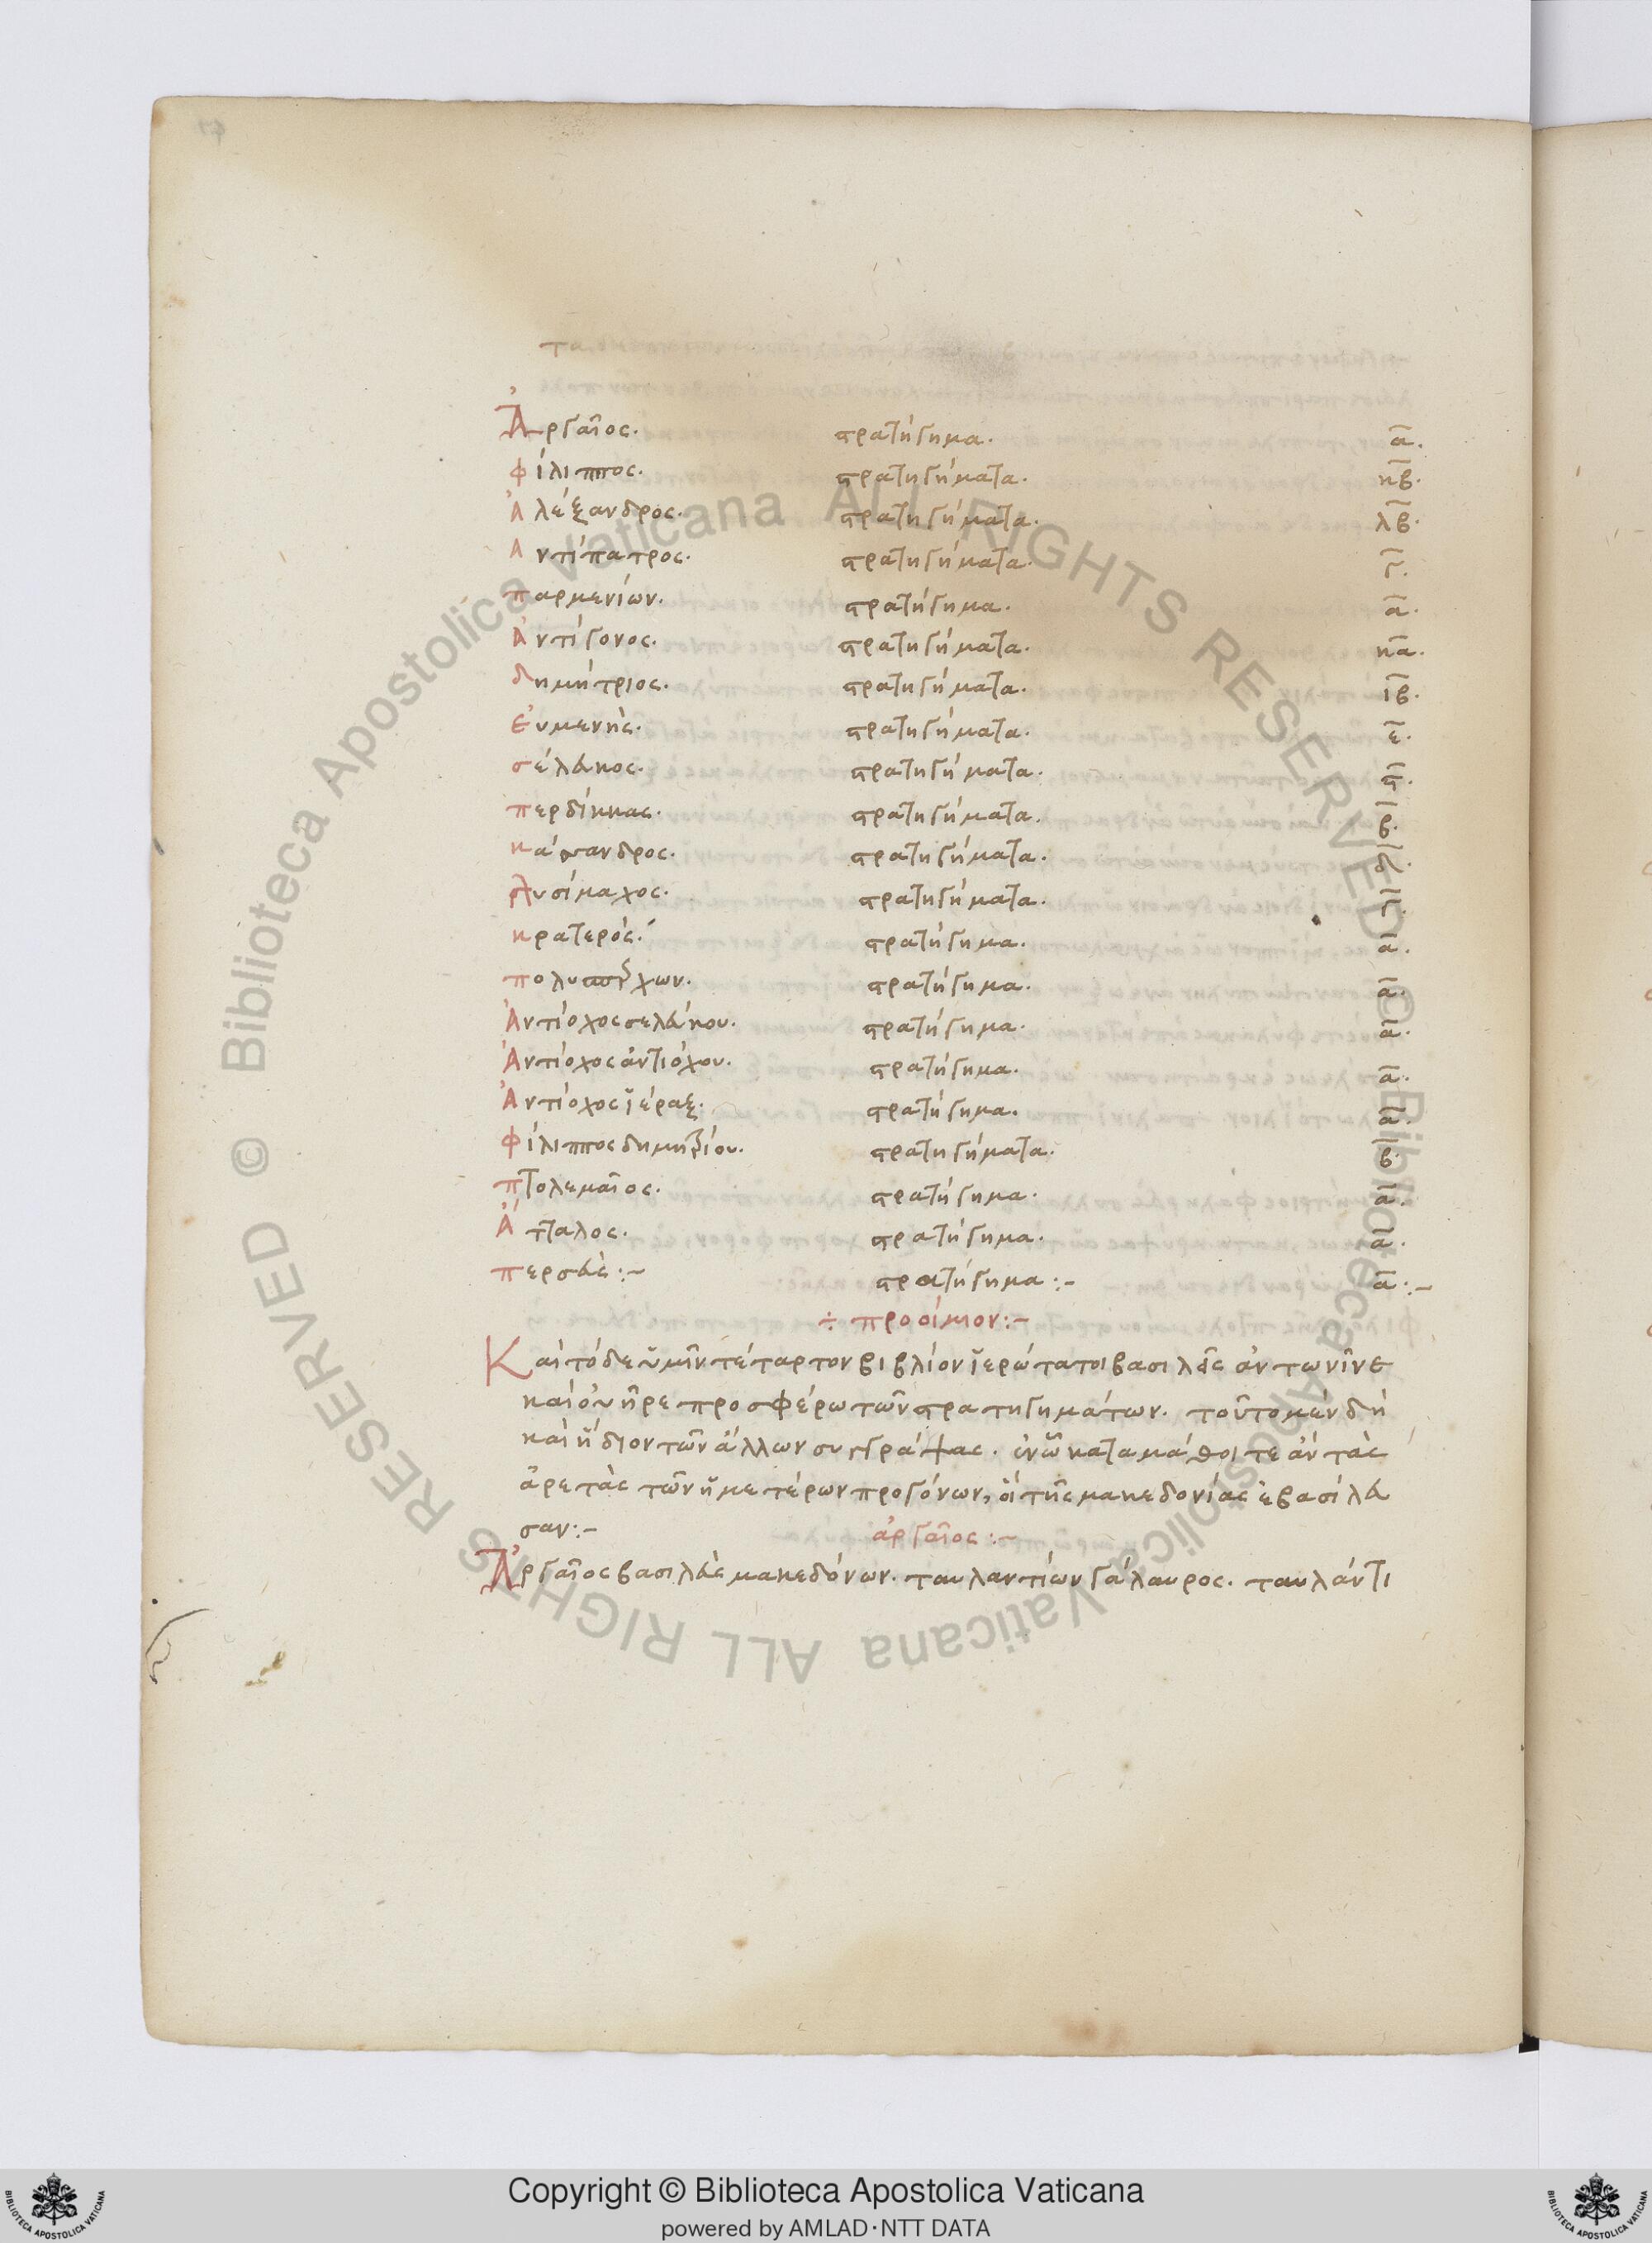 τα.
Ἀργαῖος. στρατήγημα. α.
φίλιππος. στρατηγήματα. κβ.
Ἀλέξανδρος. στρατηγήματα. λβ.
Ἀντίπατρος. στρατηγήματα. γ.
παρμενίων. στρατήγημα. α.
Ἀντίγονος. στρατηγήματα. κα.
δημήτριος. στρατηγήματα. ιβ.
εὐμενὴς. στρατηγήματα. ε.
σέλευκος. στρατηγήματα. ϛ.
περδίκκας. στρατηγήματα. β.
κάσανδρος. στρατηγήματα. δ.
λυσίμαχος. στρατηγήματα. γ.
κρατερός. στρατήγημα. α.
πολυσπέρχων. στρατήγημα. α.
Ἀντίοχος σελεύκου. στρατήγημα. α.
Ἀντίοχος ἀντιόχου. στρατήγημα. α.
Ἀντίοχος ἱέραξ. στρατήγημα. α.
φίλιππος δημητρίου. στρατηγήματα. β.
πτολεμαῖος. στρατήγημα. α.
Ἄτταλος. στρατήγημα. α.
περσεὺς :- στρατήγημα :- α :-
÷ προοίμιον :-
Καὶ τόδε ὑμῖν τέταρτον βιβλίον ἱερώτατοι βασιλεῖς ἀντωνῖνε
καὶ οὐῆρε προσφέρω τῶν στρατηγημάτων. τοῦτο μὲν δὴ
καὶ ἥδιον τῶν ἄλλων συγγράψας. ἐν ᾧ καταμάθοιτε ἂν τὰς
ἀρετὰς τῶν ἡμετέρων προγόνων, οἳ τῆς μακεδονίας ἐβασίλευ
σαν :- ἀργαῖος :-
Ἀργαῖος βασιλεὺς μακεδόνων. ταυλαντίων γάλαυρος. ταυλάντι
Copyright © Biblioteca Apostolica Vaticana
powered by AMLAD·NTT DATA
© Biblioteca Apostolica Vaticana ALL RIGHTS RESERVED
© Biblioteca Apostolica Vaticana ALL RIGHTS RESERVED
BIBLIOTECA APOSTOLICA VATICANA
BIBLIOTECA APOSTOLICA VATICANA